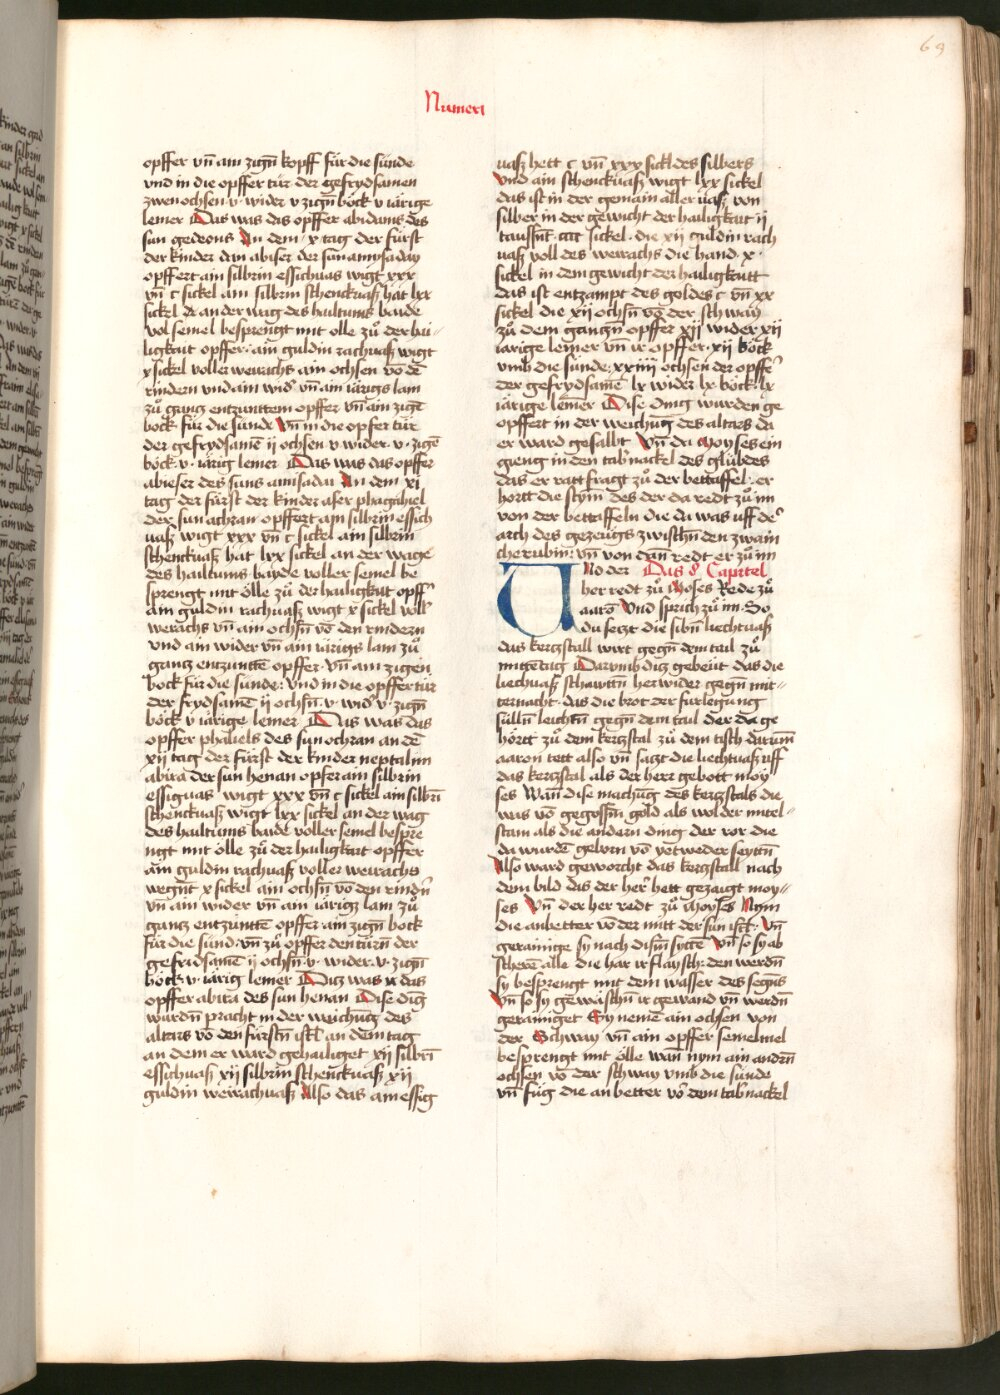 69
Numeri
opffer vn̄ am zigñ kopff für die sünde
vnd in die opffer tür der egefrydsamen
zwen ochsen · v · wider v zigñ böck v iärige
lemer Das was das opffer abidams des
sun gedeons An dem · x · tag der fürst
der kinder dan abiser der sun amysaday
opffert ain silbrin essichuas wigt xxx
vn̄ c sickel am silbrin schenckuaſʒ hat lxx
sickel & an der wag des hailtums baide
vol semel besprengt mit ölle zů der hai⸗
ligkait opffer · ain guldin rachuaſʒ wigt
x sickel voller weirachs am ochsen vō dē
rindern vnd am wid' vn̄ am iärigs lam
zů gantz entzunttem opffer vn̄ ain zigē
bock für die sünde Vn̄ in die opfer tür
der gefrydsamē ij ochsen v wider · v · zigē
böck · v · iärig lemer Das was das opffer
abieser des suns amisadai An dem xi
tag der fürst der kinder aser phagihiel
der sun achran opffert am silbrin essich
uaſʒ wigt xxx vn̄ c sickel am silbrin
schenckuaſʒ hat lxx sickel an der wage
des hailtums bayde voller semel be
sprengt mit ölle zů der hailigkait opff'
am guldin rachuaſʒ wigt x sickel voll'
weirachs vn̄ am ochsñ vō den rindern
vnd am wider vn̄ am iärigs lam zů
gantz entzunttē opffer · vn̄ am zigen
bock für die sünde : vnd in die opffer tür
der frydsamē ij ochsñ · v · wid' v · zigñ
böck v iärige lemer Das was das
opffer phaliels des sun ochran an dē
xij tag der fürst der kinder neptalim
abira der sun henan opfer am silbrin
essiguas wigt xxx vn̄ c sickel ain silbrī
schenckuaſʒ wigt lxx sickel an der wag
des hailtums baide voller semel bespre
ngt mit ölle zů der hailigkait opffer
am guldin rachuaſʒ voller weirachs
wegnt x sickel ain ochsñ vō den rindñ
vn̄ am wider vn̄ am iärigʒ lam zů
gantz entzuntte opffer am zigñ bock
für die sünd · vn̄ zů opffer den türn der
gefridsamē ij ochsñ · v · wider · v · zigñ
böck · v · iärig lemer Ditz was das
opffer abira des sun henan Dise dīg
wurdn̄ pracht in der weichūg des
altars vō den fürstñ isrl̄ an dem tag
an dem er ward gehailiget xij silbrī
essichuaſʒ xij silbrin schenckuaſʒ xij
guldin weirachuaſʒ Also das am essig
uaſʒ hett c vn̄ xxx sickl des silbers
Vnd ain schenckuaſʒ wigt lxx sickel
das ist in der gemain aller uaſʒ von
silber in der gewicht der hailigkait ij
taussnt · cccc sickel · die xij guldin rach
uaſʒ voll des weirachs die hand · x ·
sickel in dem gewicht der hailigkaitt
das ist entzampt des goldes c vn̄ xx
sickel die xij ochsñ vō der schway
zů dem gangñ opffer xij wider xij
iärige lemer vn̄ ir opffer · xij böck
vmb die sünde : xxiiij ochsen der opffē
der gefrydsamē lx wider lx böck · lx
iärige lemer Dise ding wurden ge
opffert in der weichūg des altars da
er ward gesalbt Vn̄ da Moyses ein
gieng in den tab'nackel des glübdes
das er ratt fragt zů der bettaffel · er
hortt die stym des der da redt zů im
von der bettaffeln die da was uff de'
arch des gezeugs zwischñ den zwain
cherubin : vn̄ von dan redt er zů im
UNd der Das 8 Capitel
her redt zů Moses Rede zů
aarō Vnd sprich zů im · So
du setzt die sibñ liechtuaſʒ
das kertzstall wirt gegñ dem tail zů
mittetag Darumb ditz gebeüt das die
liechuaſʒ schawttn̄ herwider gegñ mit⸗
ternacht · das die brot der fürlegung
sülln leichtñ gegñ dem tail der da ge
hörtt zů dem kertzstal zů dem tisch darum̄
aaron tett also vn̄ satzt die liechtuaſʒ uff
das kertzstal als der herr gebott moy
ses Wan̄ dise machūg des kertzstals die
was vō gegossm̄ gold als wol der mitel⸗
stam als die andern ding der ror die
da wurdē geborn vō yetweder seyttn̄
Also ward geworcht das kertzstall nach
dem bild das der her' hett gezaigt moy⸗
ses Vn̄ der her redt zů Moyses Nym
die anbetter vō der mitt der sun isrl̄ : Vn̄
geraintge sy nach dism̄ sytte Vn̄ so sy ab
scherē alle die har ir flaysch : den werdñ
sy besprengt mit dem wasser des segñs
Vn̄ so sy gewäschñ ir gewand vn̄ werdñ
gerainiget Sy nemē ain ochsen von
der Schway vn̄ am opffer semelmel
besprengt mit ölle wan̄ nym ain andn̄
ochsen vō der schway vmb die sünde
vn̄ füg die anbetter vō dem tab'nackel